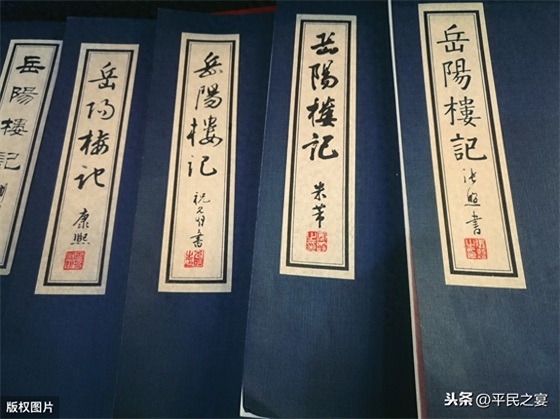 岳陽樓記 張照書
岳陽樓記 米芾
岳陽樓記 祝允明書
岳陽樓記 康熙
岳陽樓記
版权图片
头条 @平民之宴